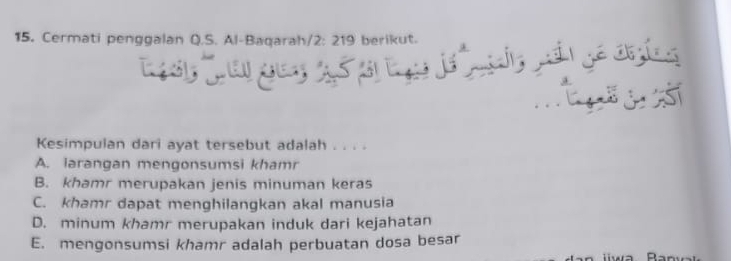 15. Cermati penggalan Q.S. Al-Baqarah/2: 219 berikut.
يَسْـَٔلُوْنَكَ عَنِ الْخَمْرِ وَالْمَيْسِرِۗ قُلْ فِيْهِمَآ اِثْمٌ كَبِيْرٌ وَّمَنَافِعُ لِلنَّاسِۖ وَاِثْمُهُمَآ
اَكْبَرُ مِنْ نَّفْعِهِمَاۗ . . .
Kesimpulan dari ayat tersebut adalah . . . .
A. larangan mengonsumsi khamr
B. khamr merupakan jenis minuman keras
C. khamr dapat menghilangkan akal manusia
D. minum khamr merupakan induk dari kejahatan
E. mengonsumsi khamr adalah perbuatan dosa besar
dan jiwa. Banyak